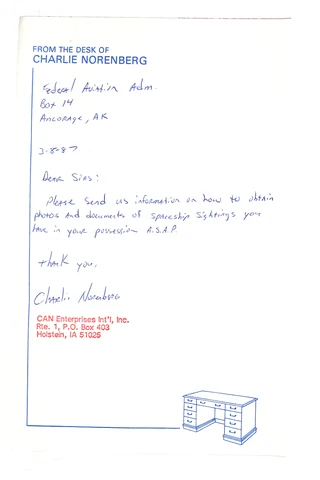 FROM THE DESK OF
CHARLIE NORENBERG
Federal Aviation Adm.
Box 14
Ancorage, AK
3-8-87
Dear Sirs:
Please send us information on how to obtain
photos and documents of spaceship sightings you
have in your possession A.S.A.P.
thank you,
Charlie Norenberg
CAN Enterprises Int'l, Inc.
Rte. 1, P.O. Box 403
Holstein, IA 51025